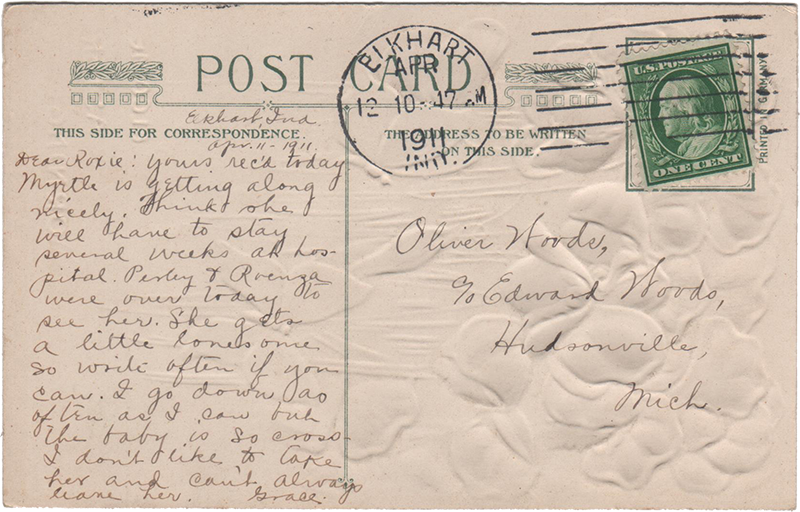 POST CARD
ELKHART
APR
12
10-17 AM
1911
IND.
U.S. POSTAGE
ONE CENT
PRINTED IN GERMANY
THIS SIDE FOR CORRESPONDENCE.
THE ADDRESS TO BE WRITTEN
ON THIS SIDE.
Elkhart, Ind.
Apr. 11-1911.
Dear Roxie: Yours rec'd today
Myrtle is getting along
nicely. Think she
will have to stay
several weeks at hos-
pital. Perley & Roenza
were over today to
see her. She gets
a little lonesome
so write often if you
can. I go down as
often as I can but
the baby is so cross
I don't like to take
her and can't always
leave her. Grace.
Oliver Woods,
c/o Edward Woods,
Hudsonville,
Mich.